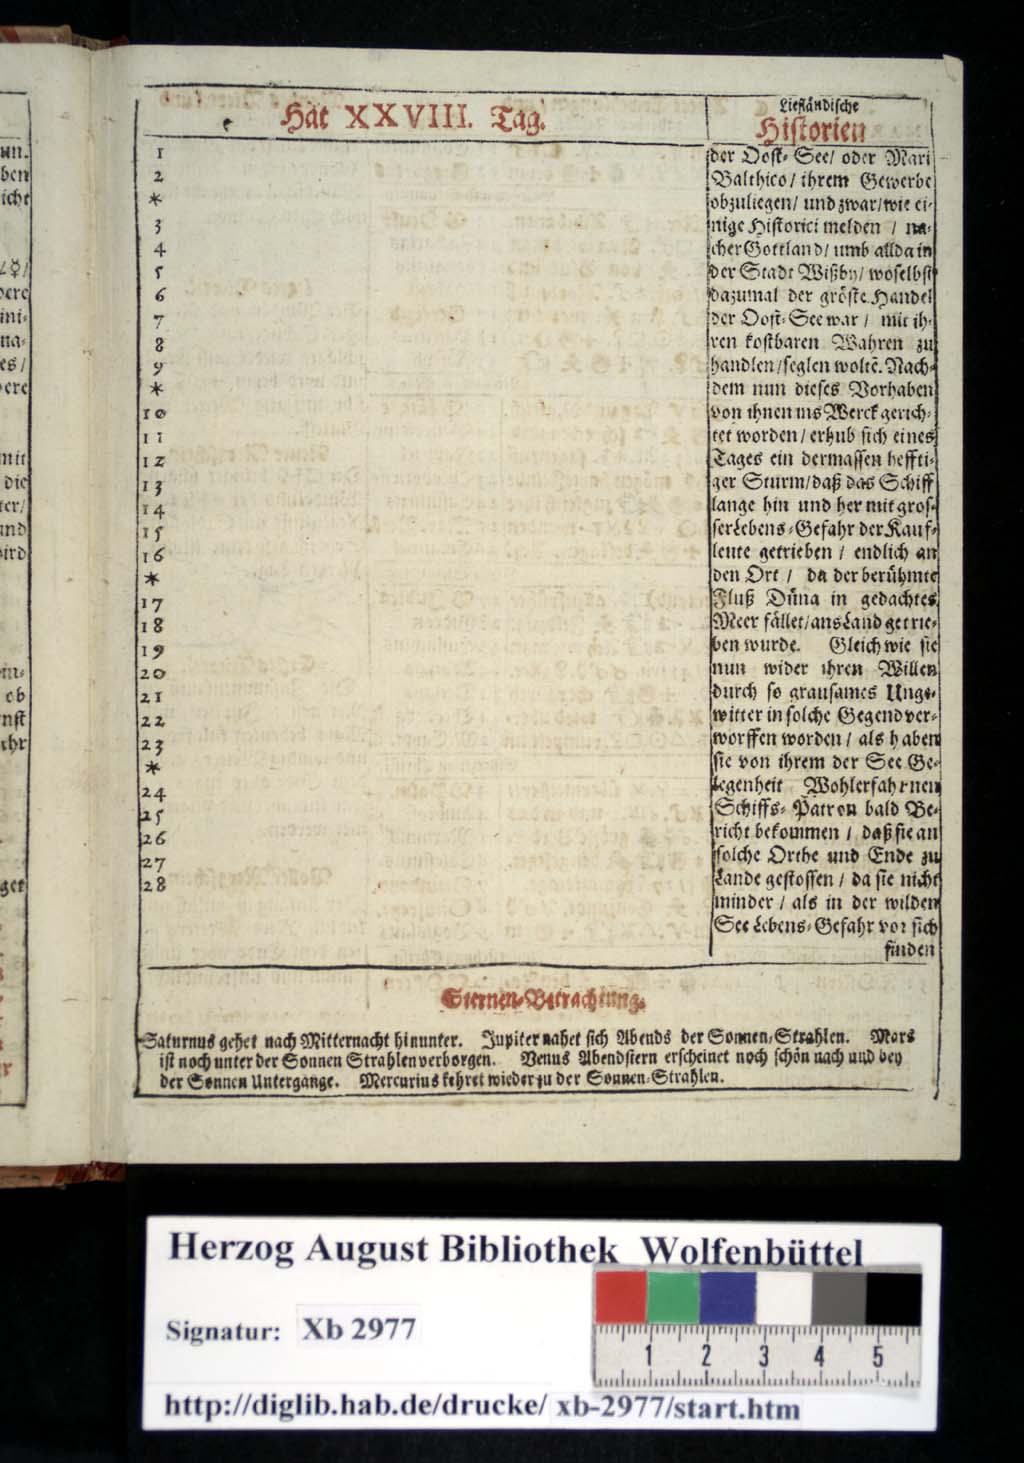 Hat XXVIII. Tag.
Liefländische
Historien
1
2
*
3
4
5
6
7
8
9
*
10
11
12
13
14
15
16
*
17
18
19
20
21
22
23
*
24
25
26
27
28
der Oost-See/ oder Mari
Balthico/ ihrem Gewerbe
obzuliegen/ und zwar/wie ei-
nige Historici melden / na-
cher Gottland/ umb allda in
der Stadt Wißby/ woselbst
dazumal der gröste Handel
der Oost-See war / mit ih-
ren kostbaren Wahren zu
handlen/seglen woltē. Nach-
dem nun dieses Vorhaben
von ihnen ins Werck gerich-
tet worden/ erhub sich eines
Tages ein dermassen heffti-
ger Sturm/daß das Schiff
lange hin und her mit gros-
ser Lebens-Gefahr der Kauf-
leute getrieben / endlich an
den Ort / da der berühmte
Fluß Düna in gedachtes
Meer fället/ans Land getrie-
ben wurde. Gleich wie sie
nun wider ihren Willen
durch so grausames Unge-
witter in solche Gegend ver-
worffen worden/ als haben
sie von ihrem der See Ge-
legenheit Wohlerfahrnen
Schiffs-Patron bald Be-
richt bekommen / daß sie an
solche Orthe und Ende zu
Lande gestossen/ da sie nicht
minder/ als in der wilden
See Lebens-Gefahr vor sich
finden
Sternen-Betrachtung.
Saturnus gehet nach Mitternacht hinunter. Jupiter nahet sich Abends der Sonnen-Strahlen. Mars
ist noch unter der Sonnen Strahlen verborgen. Venus Abendstern erscheinet noch schön nach und bey
der Sonnen Untergange. Mercurius kehret wieder zu der Sonnen-Strahlen.
un.
ben
icht
dere
ini-
na-
es/
dere
mit
die
ter/
und
wird
eb
nst
ihr
get
Herzog August Bibliothek Wolfenbüttel
Signatur: Xb 2977
1 2 3 4 5
http://diglib.hab.de/drucke/ xb-2977/start.htm